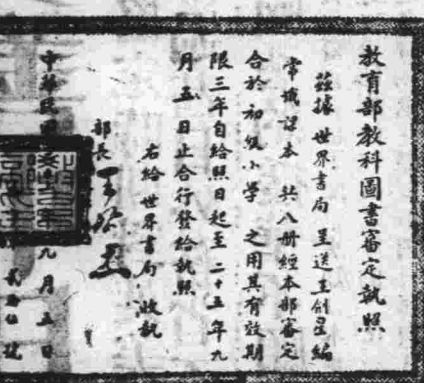 教育部教科圖書審定執照
茲據 世界書局 呈送王劍星編
常識課本 共八册經本部審定
合於 初級小學 之用其有效期
限三年自給照日起至二十五年九
月五日止合行發給執照
右給世界書局 收執
部長 王
中華民國 九月五日
號